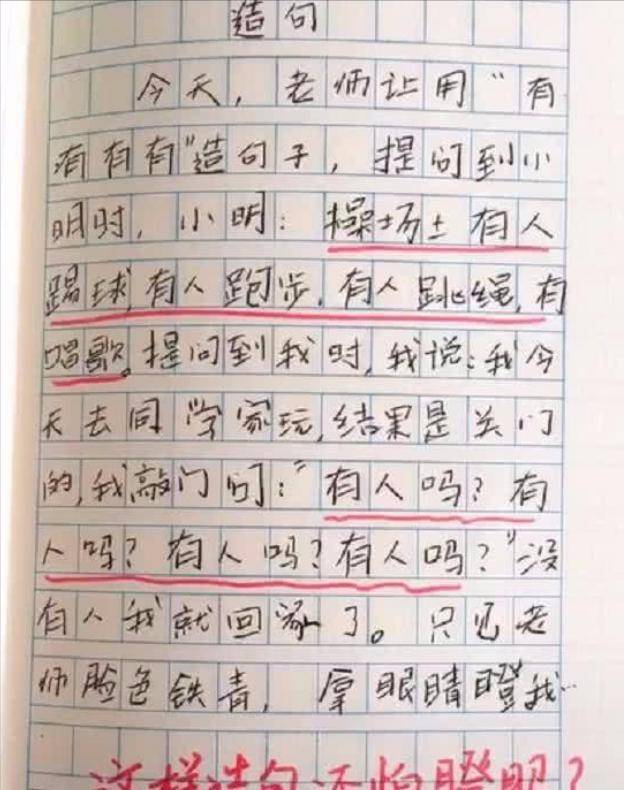 造句
今天，老师让用“有
有有有”造句子，提问到小
明时，小明：操场上有人
踢球，有人跑步，有人跳绳，有
唱歌。提问到我时，我说：我今
天去同学家玩，结果是关门
的，我敲门问：“有人吗？有
人吗？有人吗？有人吗？”没
有人我就回家了。只见老
师脸色铁青，拿眼睛瞪我…
这样造句还怕瞪眼？